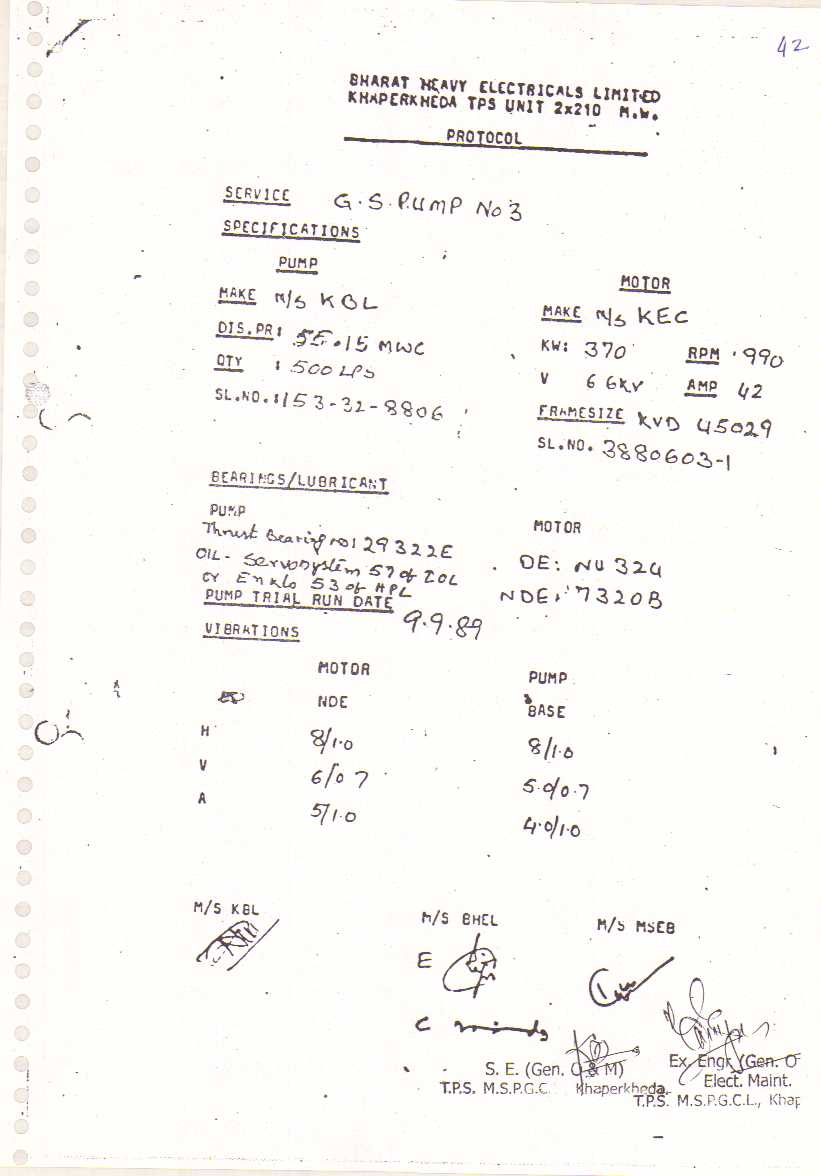 42
BHARAT HEAVY ELECTRICALS LIMITED
KHAPERKHEDA TPS UNIT 2x210 M.W.
PROTOCOL
SERVICE G.S.PUMP No 3
SPECIFICATIONS
PUMP
MAKE M/s KBL
DIS.PR: 55.15 MWC
QTY : 500 LPS
SL.NO.: 153-32-8806
MOTOR
MAKE M/s KEC
KW: 370 RPM 990
V 6 6KV AMP 42
FRAMESIZE KVD 45029
SL.NO. 3880603-1
BEARINGS/LUBRICANT
PUMP
Thrust Bearing no: 29322E
OIL- Servosystem 57 of IOL
or Enklo 53 of HPL
MOTOR
DE: NU 324
NDE: 7320B
PUMP TRIAL RUN DATE 9.9.89
VIBRATIONS
MOTOR PUMP
NDE BASE
H 8/1.0 8/1.0
V 6/0.7 5.0/0.7
A 5/1.0 4.0/1.0
M/S KBL M/S BHEL M/S MSEB
E
C
S. E. (Gen. O & M)
T.P.S. M.S.P.G.C. Khaperkheda.
Ex. Engr. (Gen. O
Elect. Maint.
T.P.S. M.S.P.G.C.L., Khap